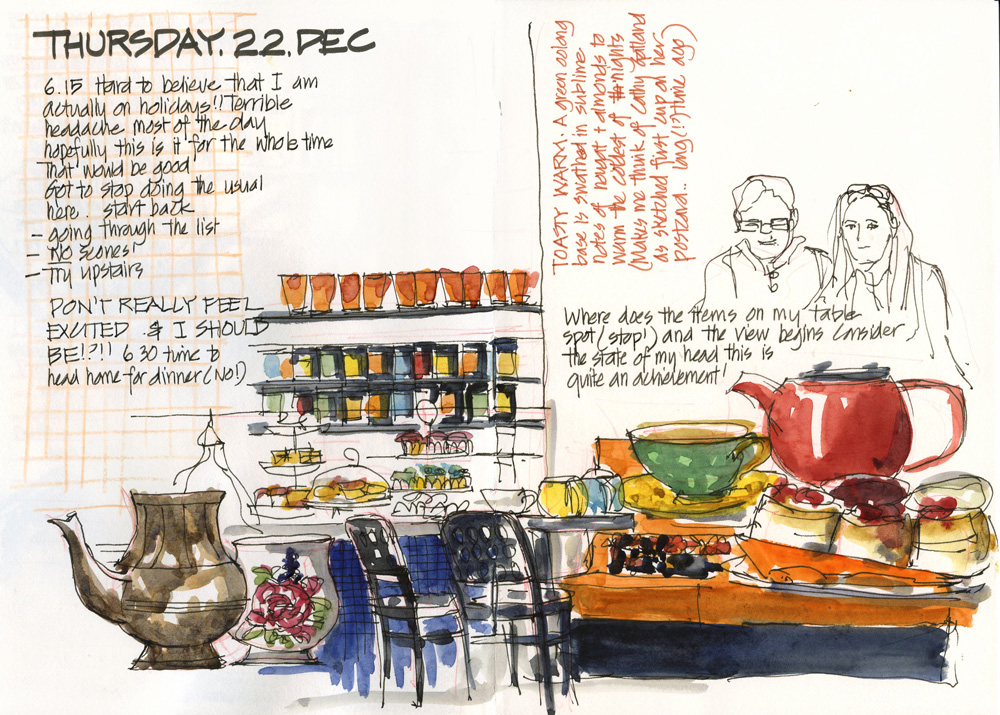 THURSDAY. 22. DEC
6.15 Hard to believe that I am
actually on holidays!! Terrible
headache most of the day
hopefully this is it for the whole time
That would be good
Got to stop doing the usual
here. start back
- going through the list
- NO scones!
- Try upstairs
DON'T REALLY FEEL
EXCITED & I SHOULD
BE!?!! 6 30 time to
head home for dinner (NO!)
TOASTY WARM: A green oolong
base is swathed in sublime
notes of nougat + almonds to
warm the coldest of nights
(Makes me think of Cathy Gatland
as sketched first cup on her
postcard.. long (!?) time ago)
Where does the items on my table
spot (stop!) and the view begins consider
the state of my head this is
quite an achievement!